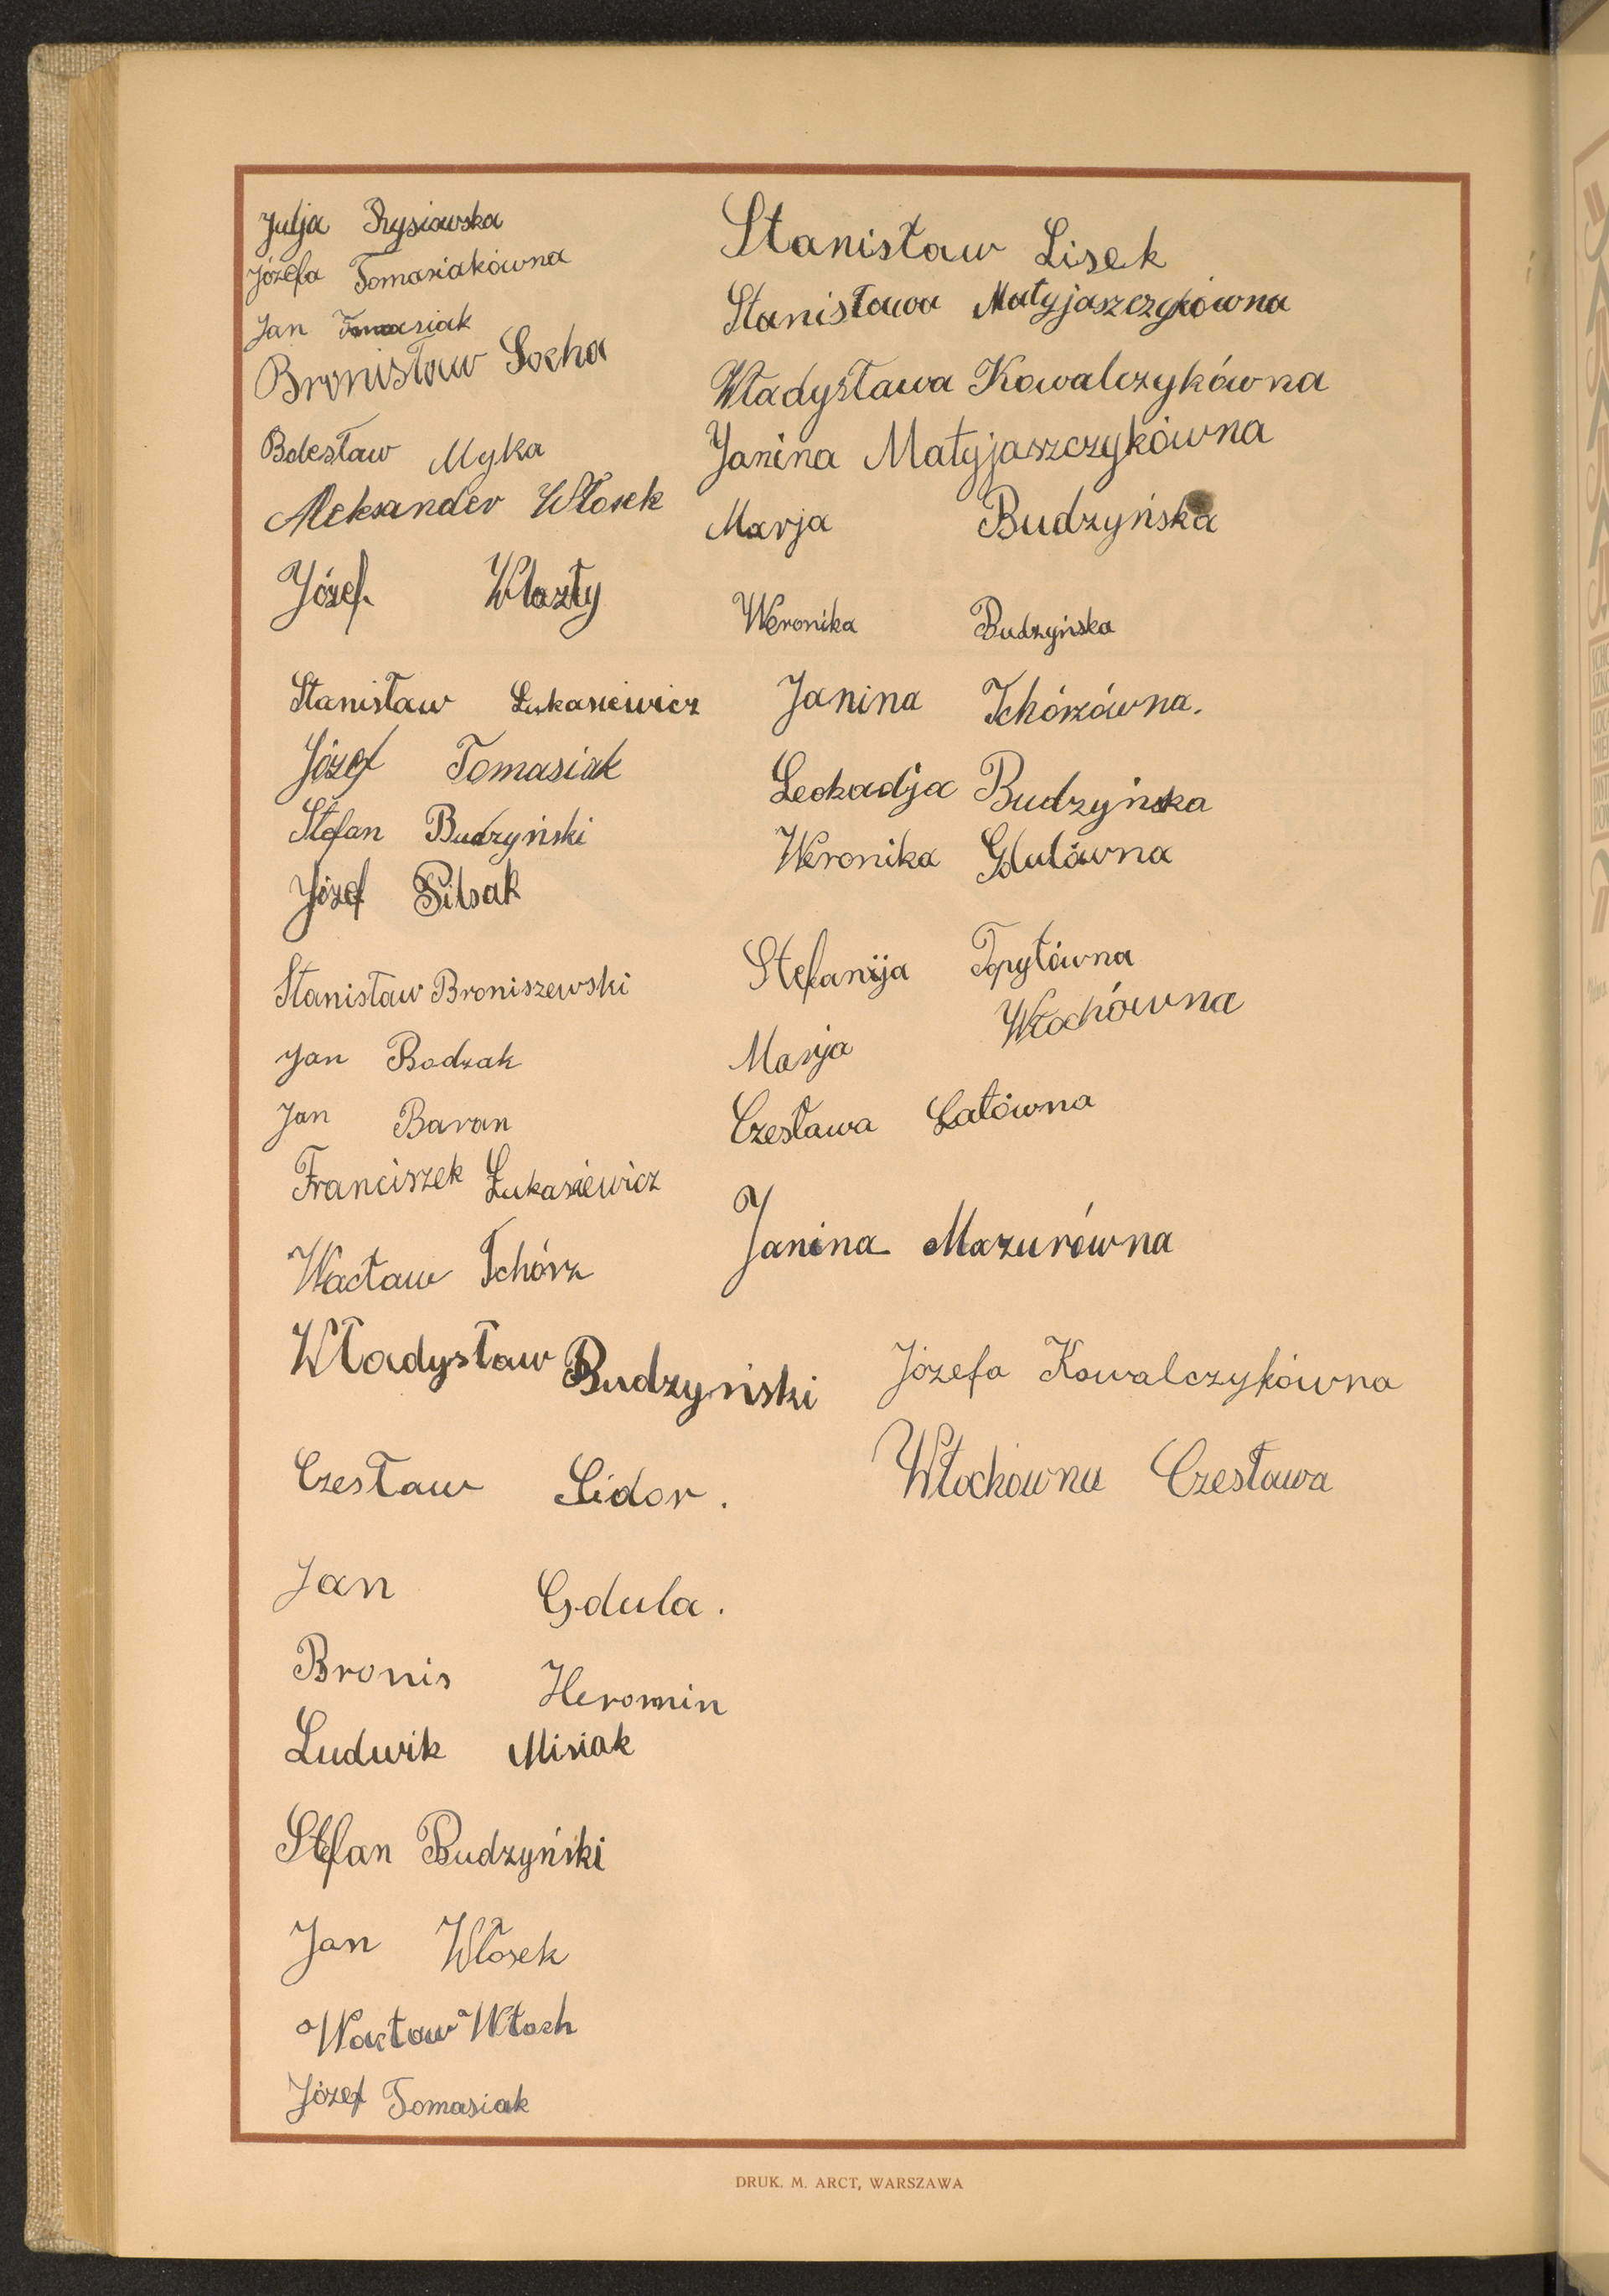 Julja Rysiawska
Józefa Tomasiakówna
Jan Tomasiak
Bronisław Socha
Bolesław Myka
Aleksander Włosek
Józef Wlazły
Stanisław Łukasiewicz
Józef Tomasiak
Stefan Budzyński
Józef Pilsak
Stanisław Broniszewski
Jan Bodzak
Jan Baran
Franciszek Łukasiewicz
Wacław Tchórz
Władysław Budzyński
Czesław Sidor.
Jan Gdula.
Bronis Heromin
Ludwik Misiak
Stefan Budzyński
Jan Włosek
Wacław Włoch
Józef Tomasiak
Stanisław Lisek
Stanisława Matyjaszczykówna
Władysława Kowalczykówna
Janina Matyjaszczykówna
Marja Budzyńska
Weronika Budzyńska
Janina Tchórzówna.
Leokadja Budzyńska
Weronika Gdulówna
Stefanija Topytówna
Marja Włochówna
Czesława Łatówna
Janina Mazurówna
Józefa Kowalczykówna
Włochówna Czesława
DRUK. M. ARCT, WARSZAWA